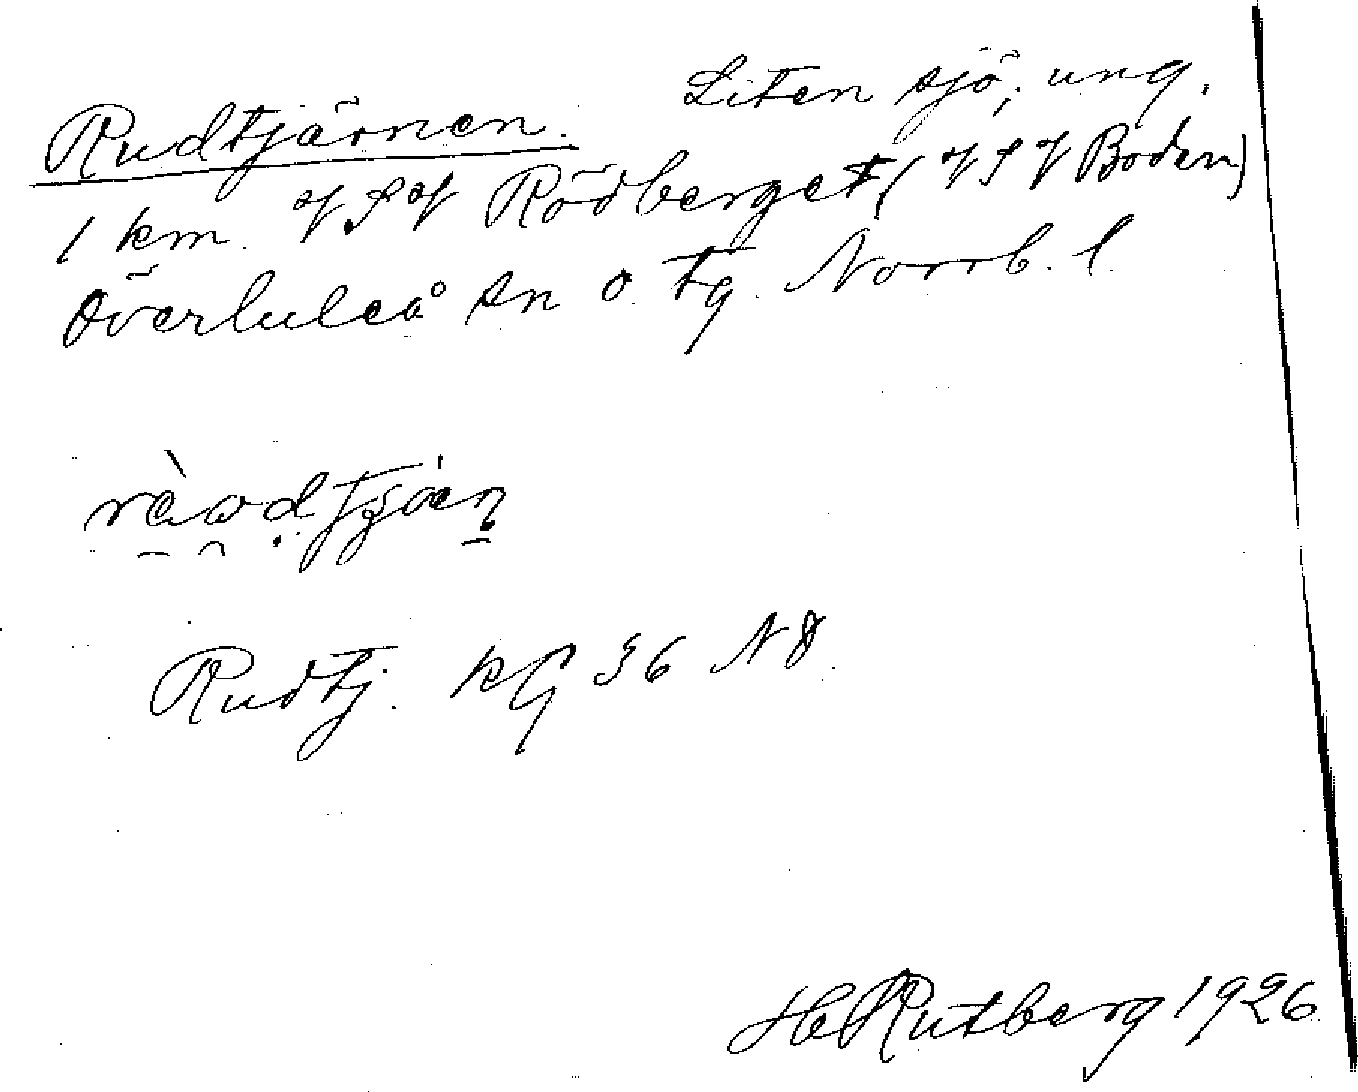 Rudtjärnen. Liten sjö, ung.
1 km. VSV Rödberget, (VSV Boden)
Överluleå sn o. tg. Norrb. l.
Rudtj. kG 36 NO.
H Rutberg 1926